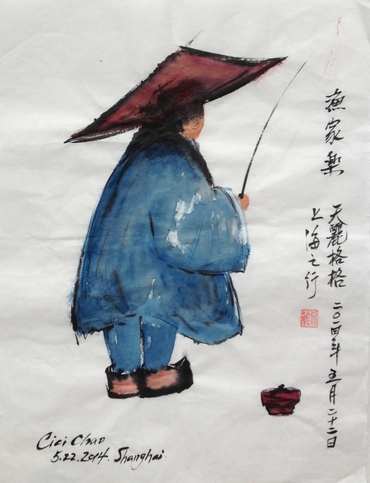 漁家樂 天麗格格 二〇一四年 五月二十二日
上海之行
Cici Chao
5.22.2014. Shanghai.